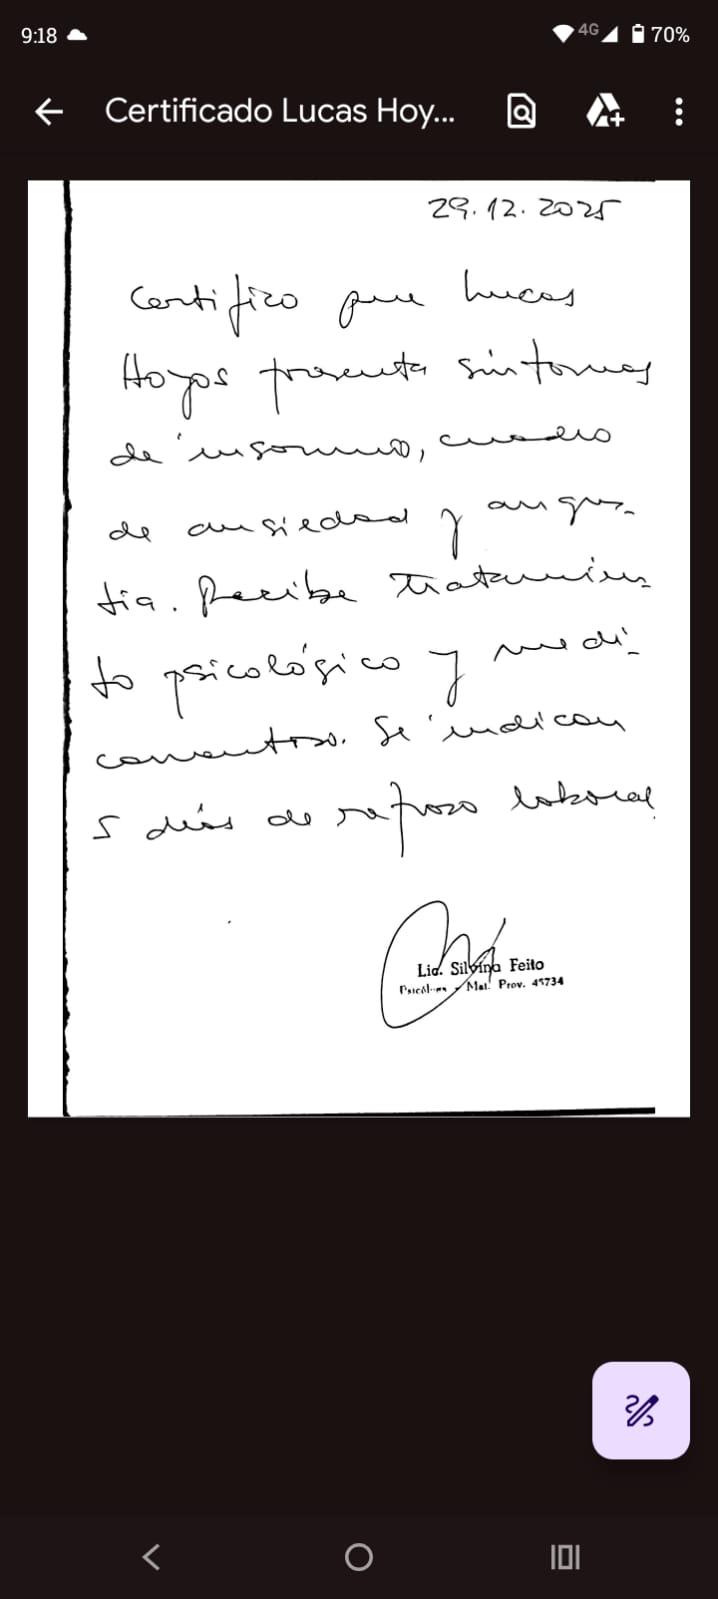 9:18
4G 70%
Certificado Lucas Hoy...
29.12.2025
Certifico que Lucas
Hoyos presenta síntomas
de insomnio, cuadro
de ansiedad y angus-
tia. Recibe tratamien-
to psicológico y medi-
camentoso. Se indican
5 días de reposo laboral.
Lic. Silvina Feito
Psicóloga - Mat. Prov. 45734